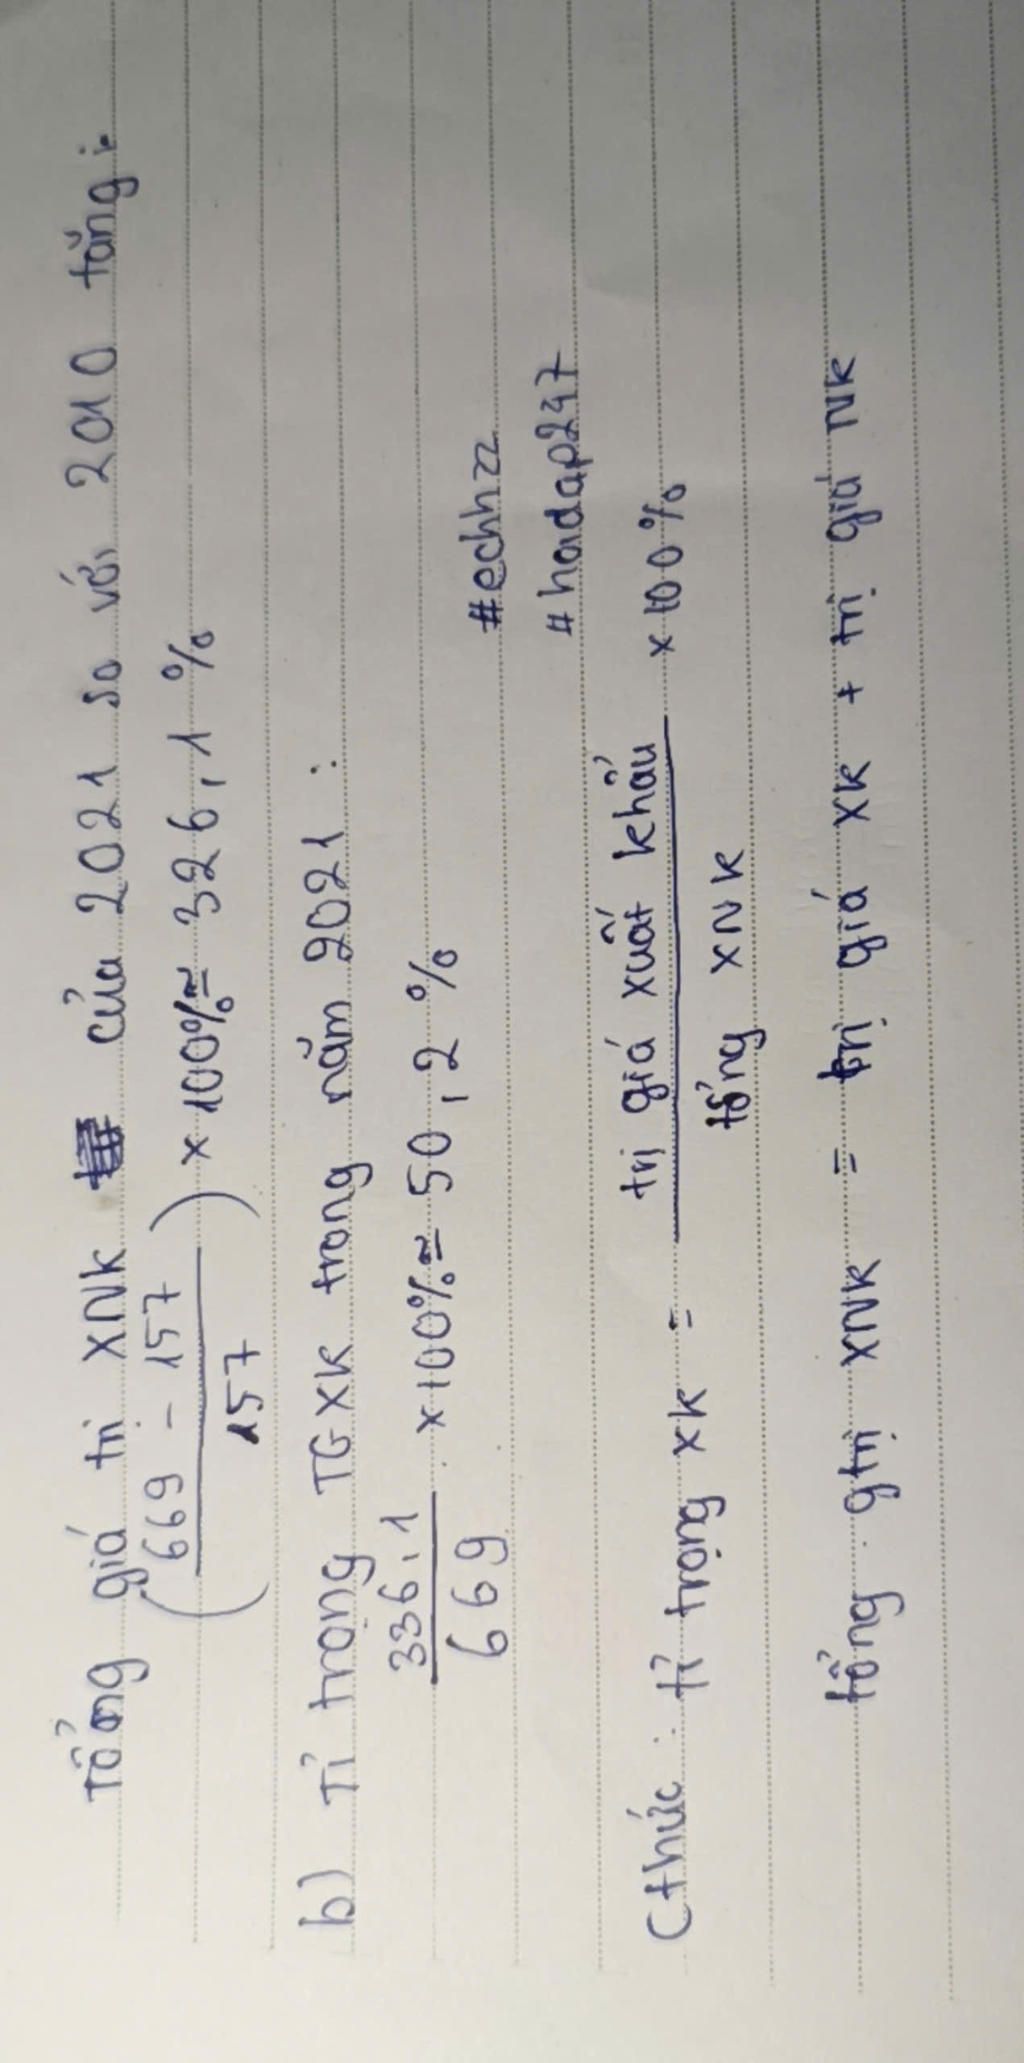 Tổng giá trị XNK của 2021 so với 2010 tăng:
(669 - 157 / 157) x 100% ≈ 326,1 %
b) Tỉ trọng TGXK trong năm 2021:
336,1 / 669 x 100% ≈ 50,2 %
#echhzz
#hoidap247
Cthức: tỉ trọng XK = trị giá xuất khẩu / tổng XNK x 100%
tổng gtrị XNK = trị giá XK + trị giá NK